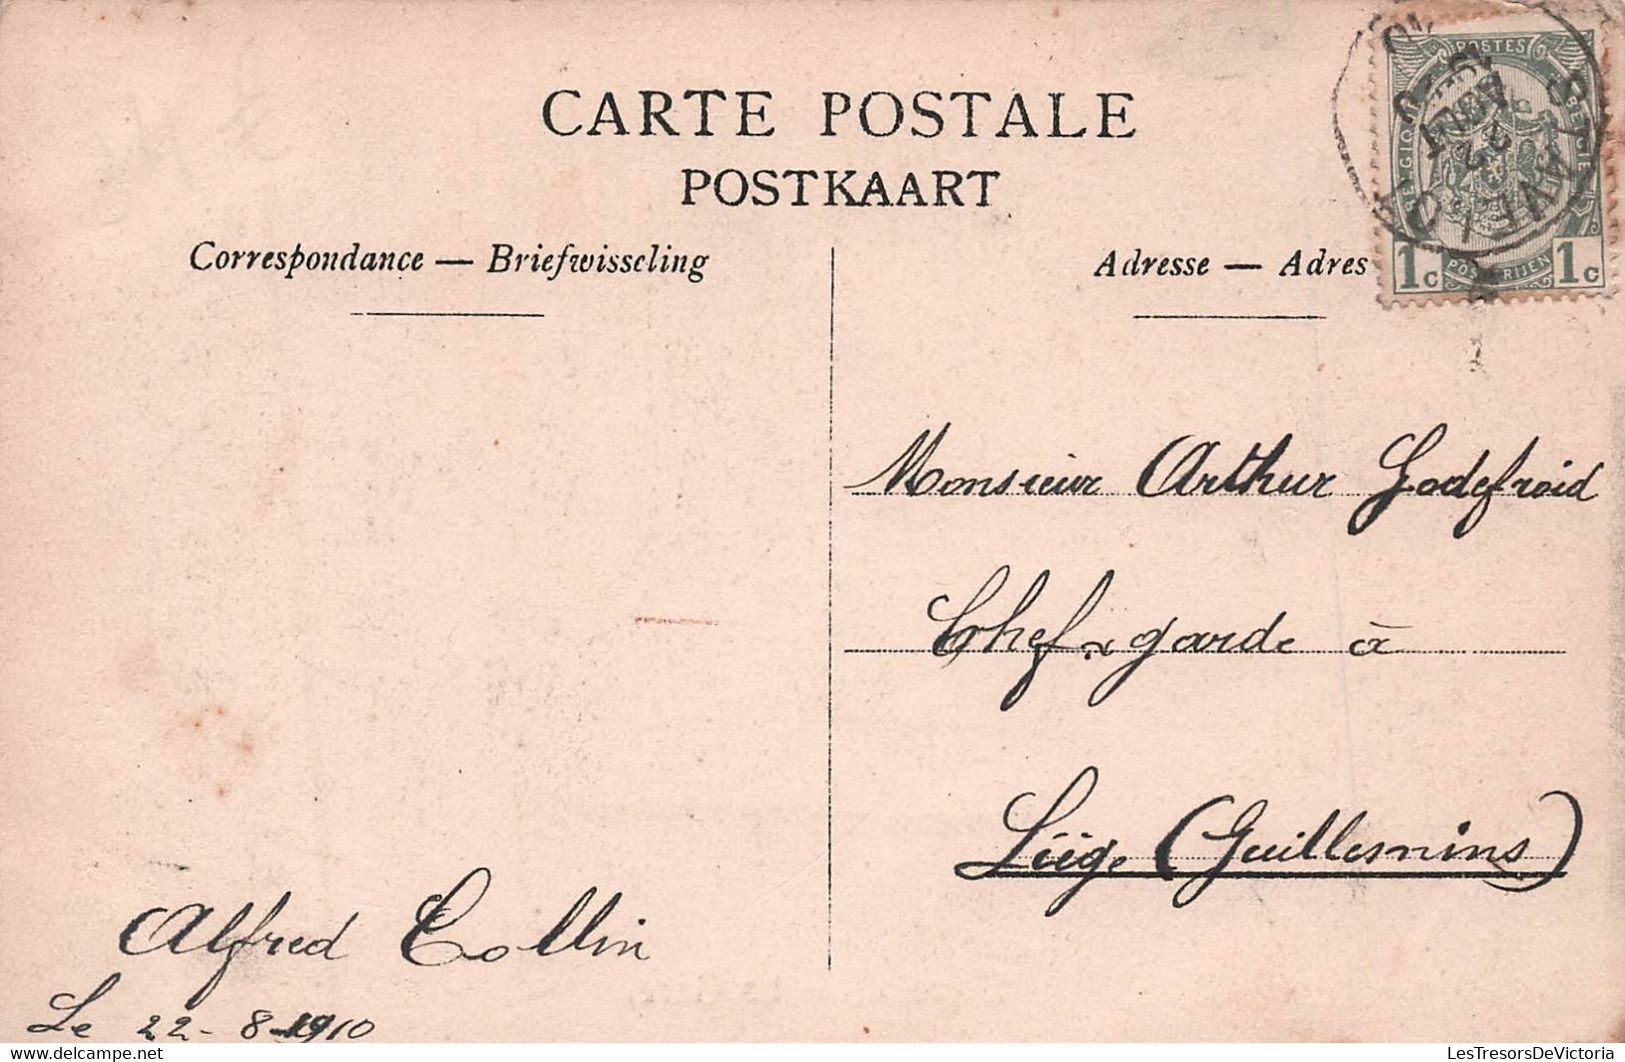 CARTE POSTALE
POSTKAART
Correspondance — Briefwisseling
Adresse — Adres
POSTES
BELGIQUE
BELGIË
POSTERIJEN
1c 1c
22
AOUT
10
Monsieur Arthur Godefroid
Chef-garde à
Liège (Guillemins)
Alfred Collin
Le 22-8-1910
LesTresorsDeVictoria
delcampe.net